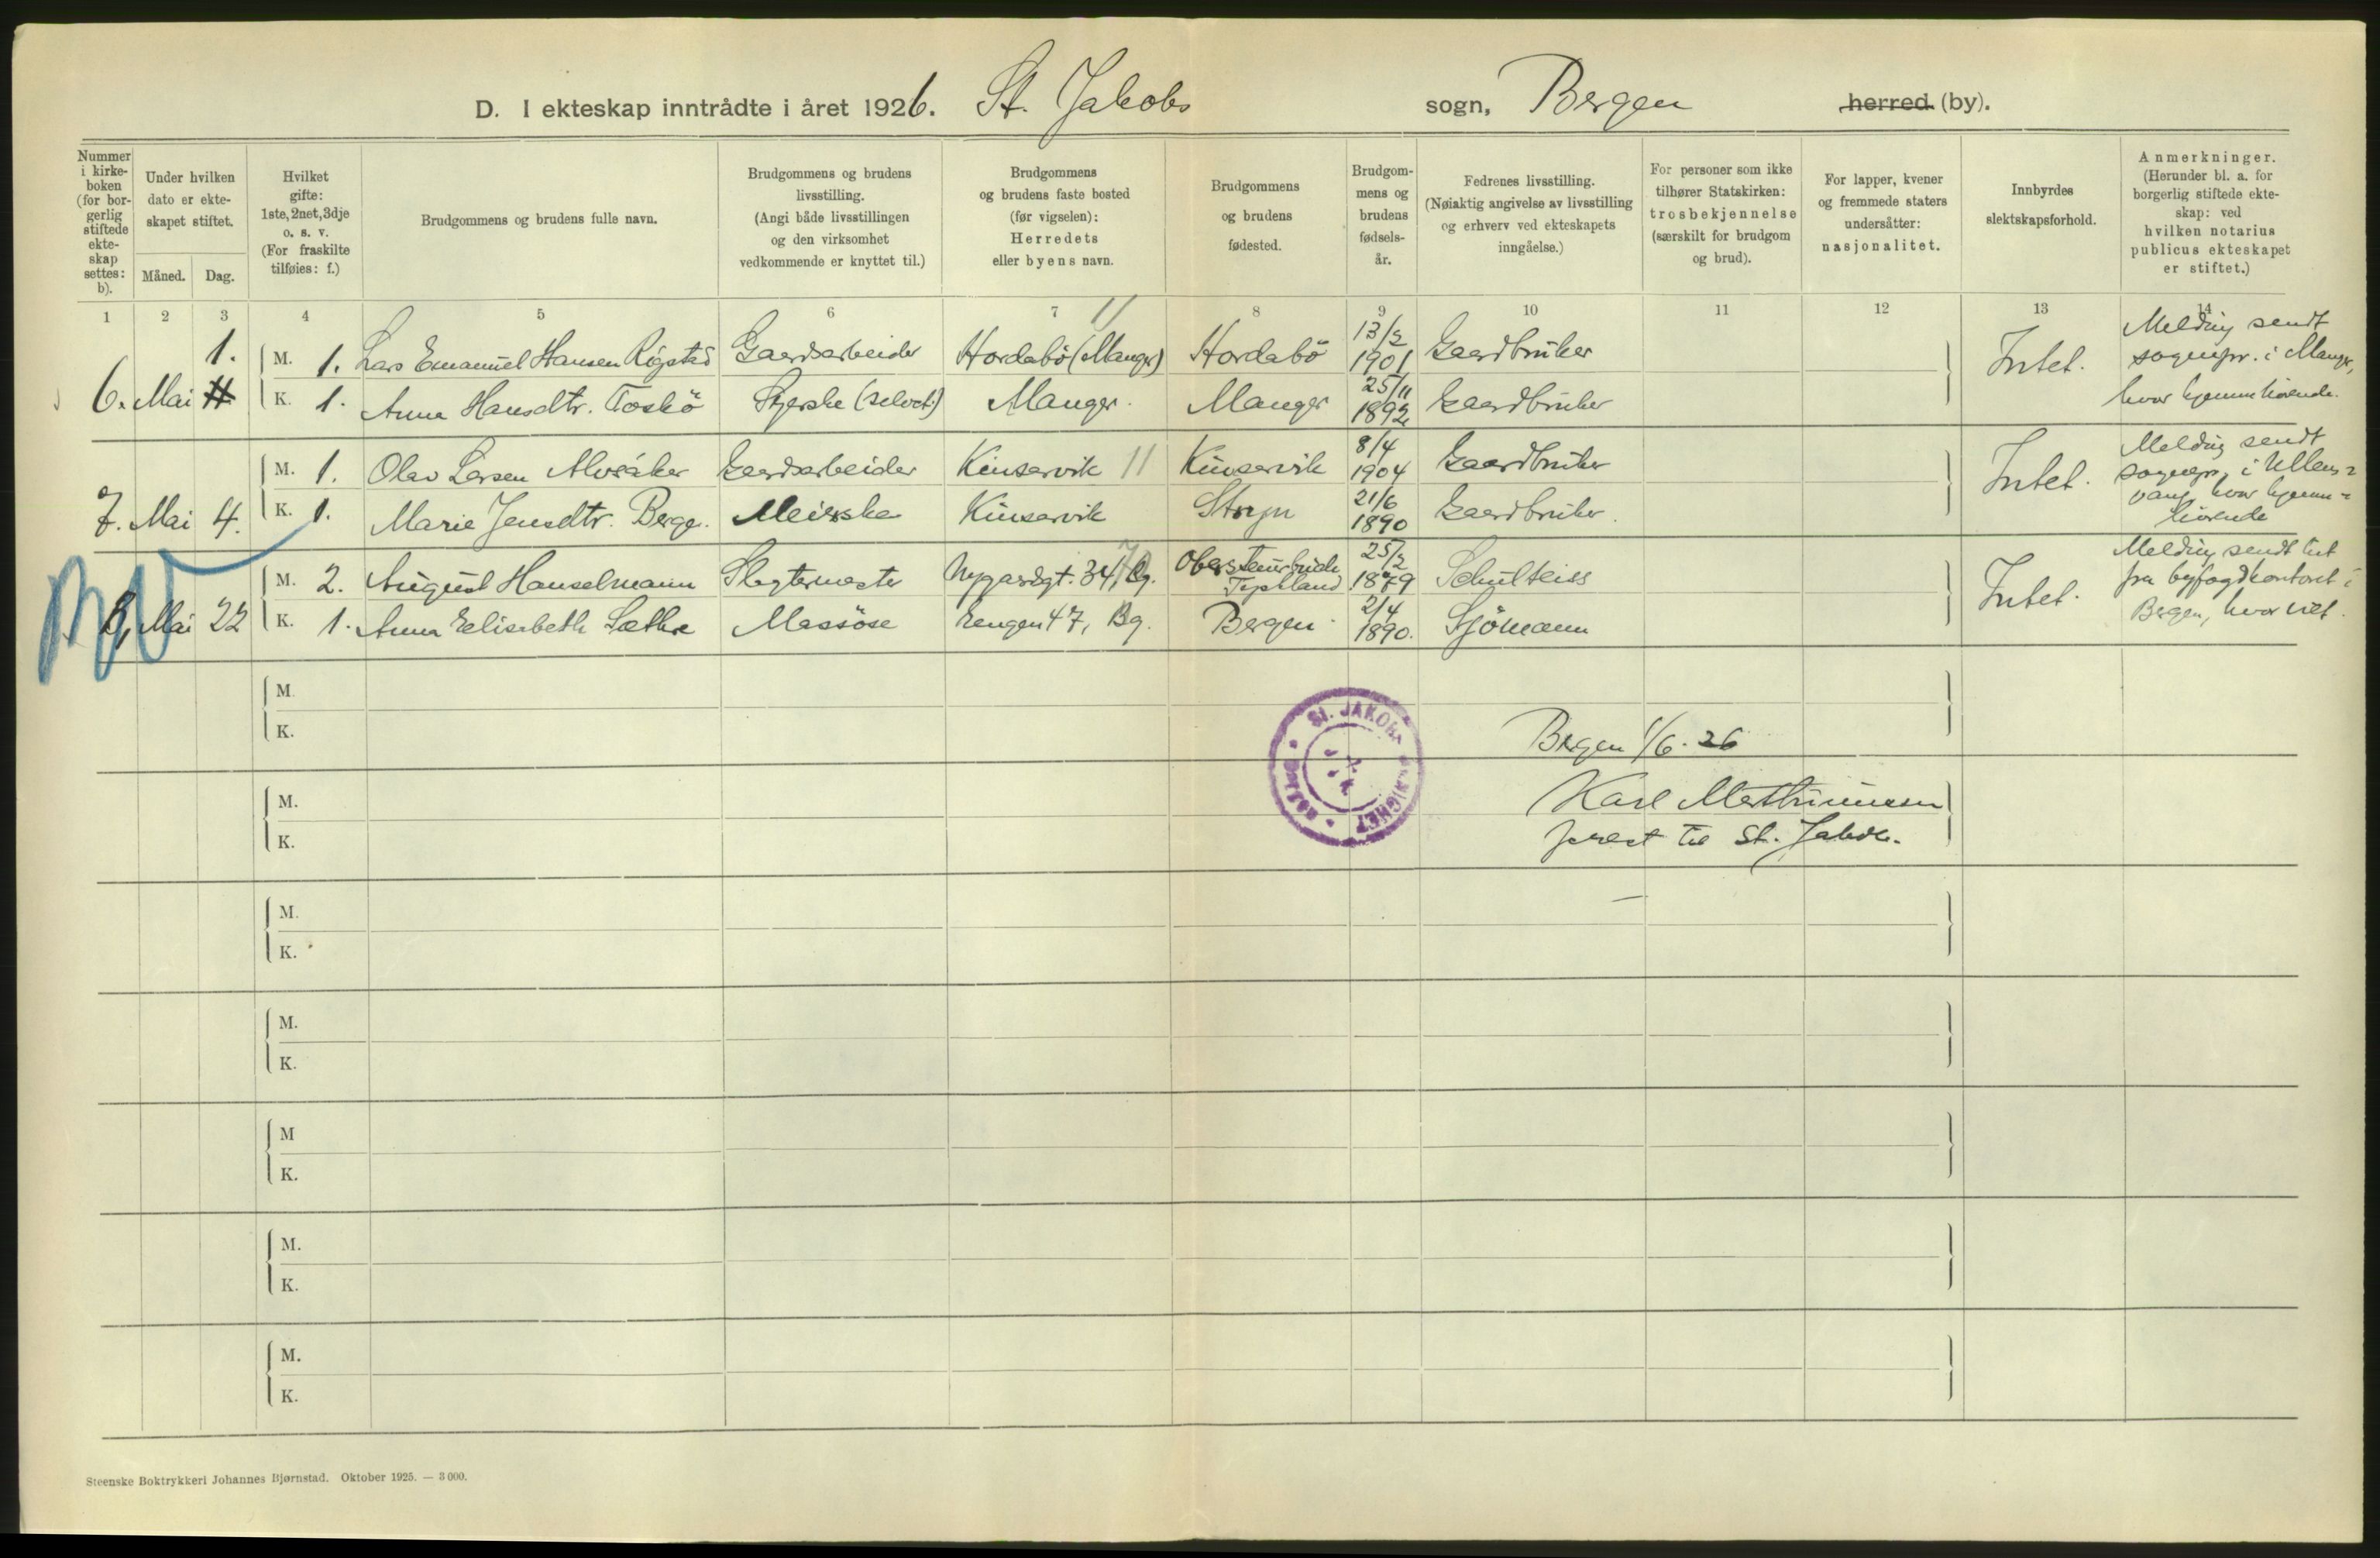 D. I ekteskap inntrådte i året 1926. St. Jakobs sogn, Bergen herred (by).
Nummer i kirke-boken (for bor-gerlig stiftede ekte-skap settes: b).
Under hvilken dato er ekte-skapet stiftet.
Måned. Dag.
Hvilket gifte: 1ste, 2net, 3dje o. s. v. (For fraskilte tilføies: f.)
Brudgommens og brudens fulle navn.
Brudgommens og brudens livsstilling. (Angi både livsstillingen og den virksomhet vedkommende er knyttet til.)
Brudgommens og brudens faste bosted (før vigselen): Herredets eller byens navn.
Brudgommens og brudens fødested.
Brudgom-mens og brudens fødsels-år.
Fedrenes livsstilling. (Nøiaktig angivelse av livsstilling og erhverv ved ekteskapets inngåelse.)
For personer som ikke tilhører Statskirken: trosbekjennelse (særskilt for brudgom og brud).
For lapper, kvener og fremmede staters undersåtter: nasjonalitet.
Innbyrdes slektskapsforhold.
Anmerkninger. (Herunder bl. a. for borgerlig stiftede ekte-skap: ved hvilken notarius publicus ekteskapet er stiftet.)
1 2 3 4 5 6 7 8 9 10 11 12 13 14
11
1. M. 1. Lars Emanuel Hansen Rigstad Gaardsarbeider Hordabö (Manger) Hordabö 13/2 1901 Gaardbruker
6. Mai K. 1. Anna Hansdtr. Toskö Syerske (selvst.) Manger. Manger 25/11 1892 Gaardbruker
Intet. Melding sendt
sognepr. i Manger,
hvor hjemmehørende.
M. 1. Olav Larsen Alvsåker Gaardsarbeider Kinservik 11 Kinservik 8/4 1904 Gaardbruker
7. Mai 4. K. 1. Marie Jensdtr. Berge. Meierske Kinservik Stryn 21/6 1890 Gaardbruker.
Intet. Melding sendt
sognepr. i Ullens=
vang, hvor hjemme=
hørende
M. 2. August Hanselmann Slagtermester Nygårdsgt. 34, Bg. Obersteinbrück Tyskland 25/2 1879 Schulteiss
8, Mai 22 K. 1. Anna Elisabeth Sæthre Massöse Engen 47, Bg. Bergen. 2/4 1890. Sjömann
Intet. Melding sendt hit
fra byfogdkontoret i
Bergen, hvor viet.
M.
K.
ST. JAKOBS MENIGHET BERGEN
Bergen 1/6. 26
M.
K.
Karl Marthinussen
prest til St. Jakob.
M.
K.
M.
K.
M
K.
M.
K.
M.
K.
Steenske Boktrykkeri Johannes Bjørnstad. Oktober 1925. — 3 000.